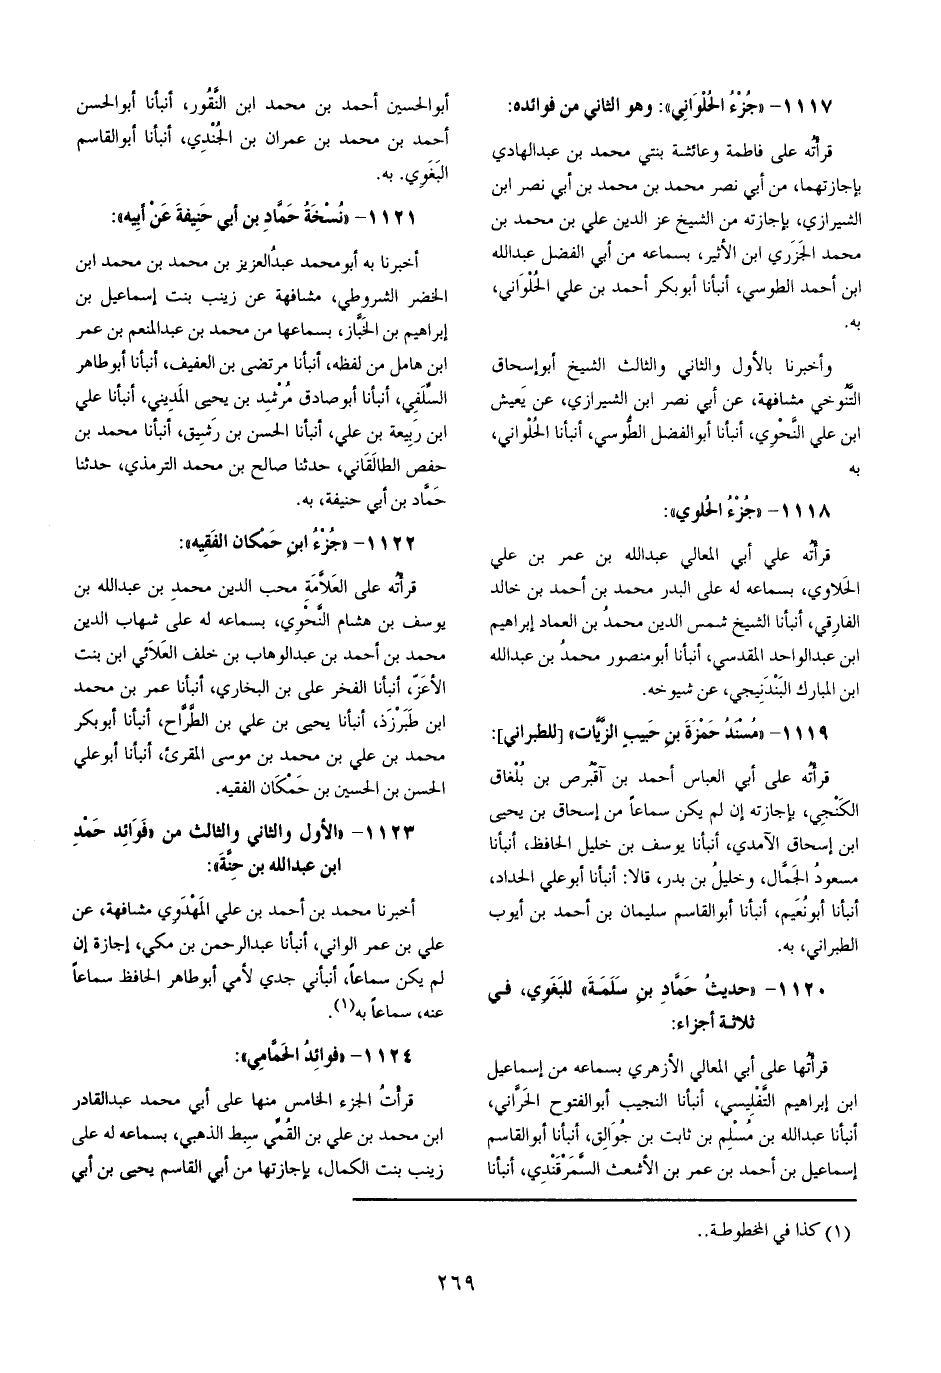 ١١١٧- «جُزْءُ الحُلْوَاني»: وهو الثاني من فوائده:
قرأتُه على فاطمة وعائشة بنتي محمد بن عبدالهادي
بإجازتهما، من أبي نصر محمد بن محمد بن أبي نصر ابن
الشيرازي، بإجازته من الشيخ عز الدين علي بن محمد بن
محمد الجَزَري ابن الأثير، بسماعه من أبي الفضل عبدالله
ابن أحمد الطوسي، أنبأنا أبوبكر أحمد بن علي الحُلْوَاني،
به.
وأخبرنا بالأول والثاني والثالث الشيخ أبوإسحاق
التَّنُوخي مشافهة، عن أبي نصر ابن الشيرازي، عن يَعيش
ابن علي النَّحْوِي، أنبأنا أبوالفضل الطُّوسي، أنبأنا الحُلْواني،
به
١١١٨- «جُزْءُ الحُلوي»:
قرأتُه على أبي المعالي عبدالله بن عمر بن علي
الحَلاوي، بسماعه له على البدر محمد بن أحمد بن خالد
الفارِقي، أنبأنا الشيخ شمس الدين محمدُ بن العماد إبراهيم
ابن عبدالواحد المقدسي، أنبأنا أبومنصور محمدُ بن عبدالله
ابن المبارك البَنْدَنِيجي، عن شيوخه.
١١١٩- «مُسْنَدُ حَمْزَةَ بنِ حَبيبٍ الزَّيَّات» [للطبراني]:
قرأتُه على أبي العباس أحمد بن آقْبُرص بن بُلْغاق
الكَنْجي، بإجازته إن لم يكن سماعاً من إسحاق بن يحيى
ابن إسحاق الآمدي، أنبأنا يوسف بن خليل الحافظ، أنبأنا
مسعودُ الجَمَّال، وخليلُ بن بدر، قالا: أنبأنا أبوعلي الحداد،
أنبأنا أبونُعَيم، أنبأنا أبوالقاسم سليمان بن أحمد بن أيوب
الطبراني، به.
١١٢٠- «حديثُ حَمَّادِ بنِ سَلَمَةَ» للبَغَوِي، في
ثلاثة أجزاء:
قرأتُها على أبي المعالي الأزهري بسماعه من إسماعيل
ابن إبراهيم التَّفْلِيسي، أنبأنا النجيب أبوالفتوح الحَرَّاني،
أنبأنا عبدالله بن مُسْلِم بن ثابت بن جُوَالِق، أنبأنا أبوالقاسم
إسماعيل بن أحمد بن عمر بن الأشعث السَّمَرْقَنْدِي، أنبأنا
أبوالحسين أحمد بن محمد ابن النَّقُور، أنبأنا أبوالحسن
أحمد بن محمد بن عمران بن الجُنْدِي، أنبأنا أبوالقاسم
البَغَوِي. به.
١١٢١- «نُسْخَةُ حَمَّادِ بن أبي حَنِيفَةَ عَنْ أبيه»:
أخبرنا به أبومحمد عبدُالعزيز بن محمد بن محمد ابن
الخضر الشروطي، مشافهة عن زينب بنت إسماعيل بن
إبراهيم بن الخَبَّاز، بسماعها من محمد بن عبدالمنعم بن عمر
ابن هامل من لفظه، أنبأنا مرتضى بن العفيف، أنبأنا أبوطاهر
السِّلَفي، أنبأنا أبوصادق مُرْشِد بن يحيى المَدِيني، أنبأنا علي
ابن رَبِيعة بن علي، أنبأنا الحسن بن رَشِيق، أنبأنا محمد بن
حفص الطالَقَاني، حدثنا صالح بن محمد الترمذي، حدثنا
حَمَّاد بن أبي حنيفة، به.
١١٢٢- «جُزْءُ ابنِ حَمْكان الفَقِيه»:
قرأتُه على العَلاَّمَةِ محب الدين محمدِ بن عبدالله بن
يوسف بن هشام النَّحْوِي، بسماعه له على شهاب الدين
محمد بن أحمد بن عبدالوهاب بن خلف العَلاَئي ابن بنت
الأعَزّ، أنبأنا الفخر على بن البخاري، أنبأنا عمر بن محمد
ابن طَبَرْزَذ، أنبأنا يحيى بن علي بن الطَّرَّاح، أنبأنا أبوبكر
محمد بن علي بن محمد بن موسى المقرئ، أنبأنا أبوعلي
الحسن بن الحسين بن حَمْكَان الفقيه.
١١٢٣- «الأول والثاني والثالث من «فَوَائِد حَمْدِ
ابن عبدالله بن حِنَّةَ»:
أخبرنا محمد بن أحمد بن علي المَهْدَوِي مشافهة، عن
علي بن عمر الواني، أنبأنا عبدالرحمن بن مكي، إجازة إن
لم يكن سماعاً، أنبأني جدي لأمي أبوطاهر الحافظ سماعاً
عنه، سماعاً به(١).
١١٢٤- «فوائدُ الحَمَّامِي»:
قرأتُ الجزء الخامس منها على أبي محمد عبدالقادر
ابن محمد بن علي بن القُمِّي سِبط الذهبي، بسماعه له على
زينب بنت الكمال، بإجازتها من أبي القاسم يحيى بن أبي
(١) كذا في المخطوطة..
٢٦٩